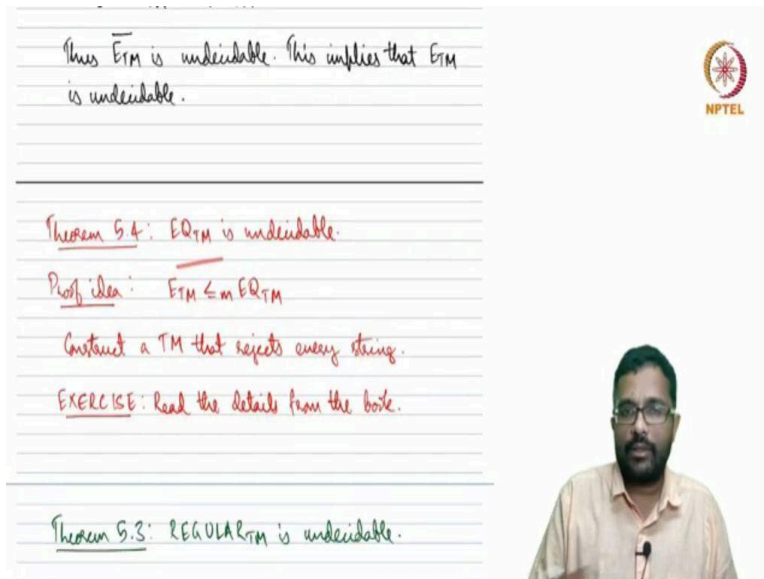 Thus E̅TM is undecidable. This implies that ETM
is undecidable.
NPTEL
Theorem 5.4: EQTM is undecidable.
Proof idea: ETM ≤m EQTM
Construct a TM that rejects every string.
EXERCISE: Read the details from the book.
Theorem 5.3: REGULARTM is undecidable.